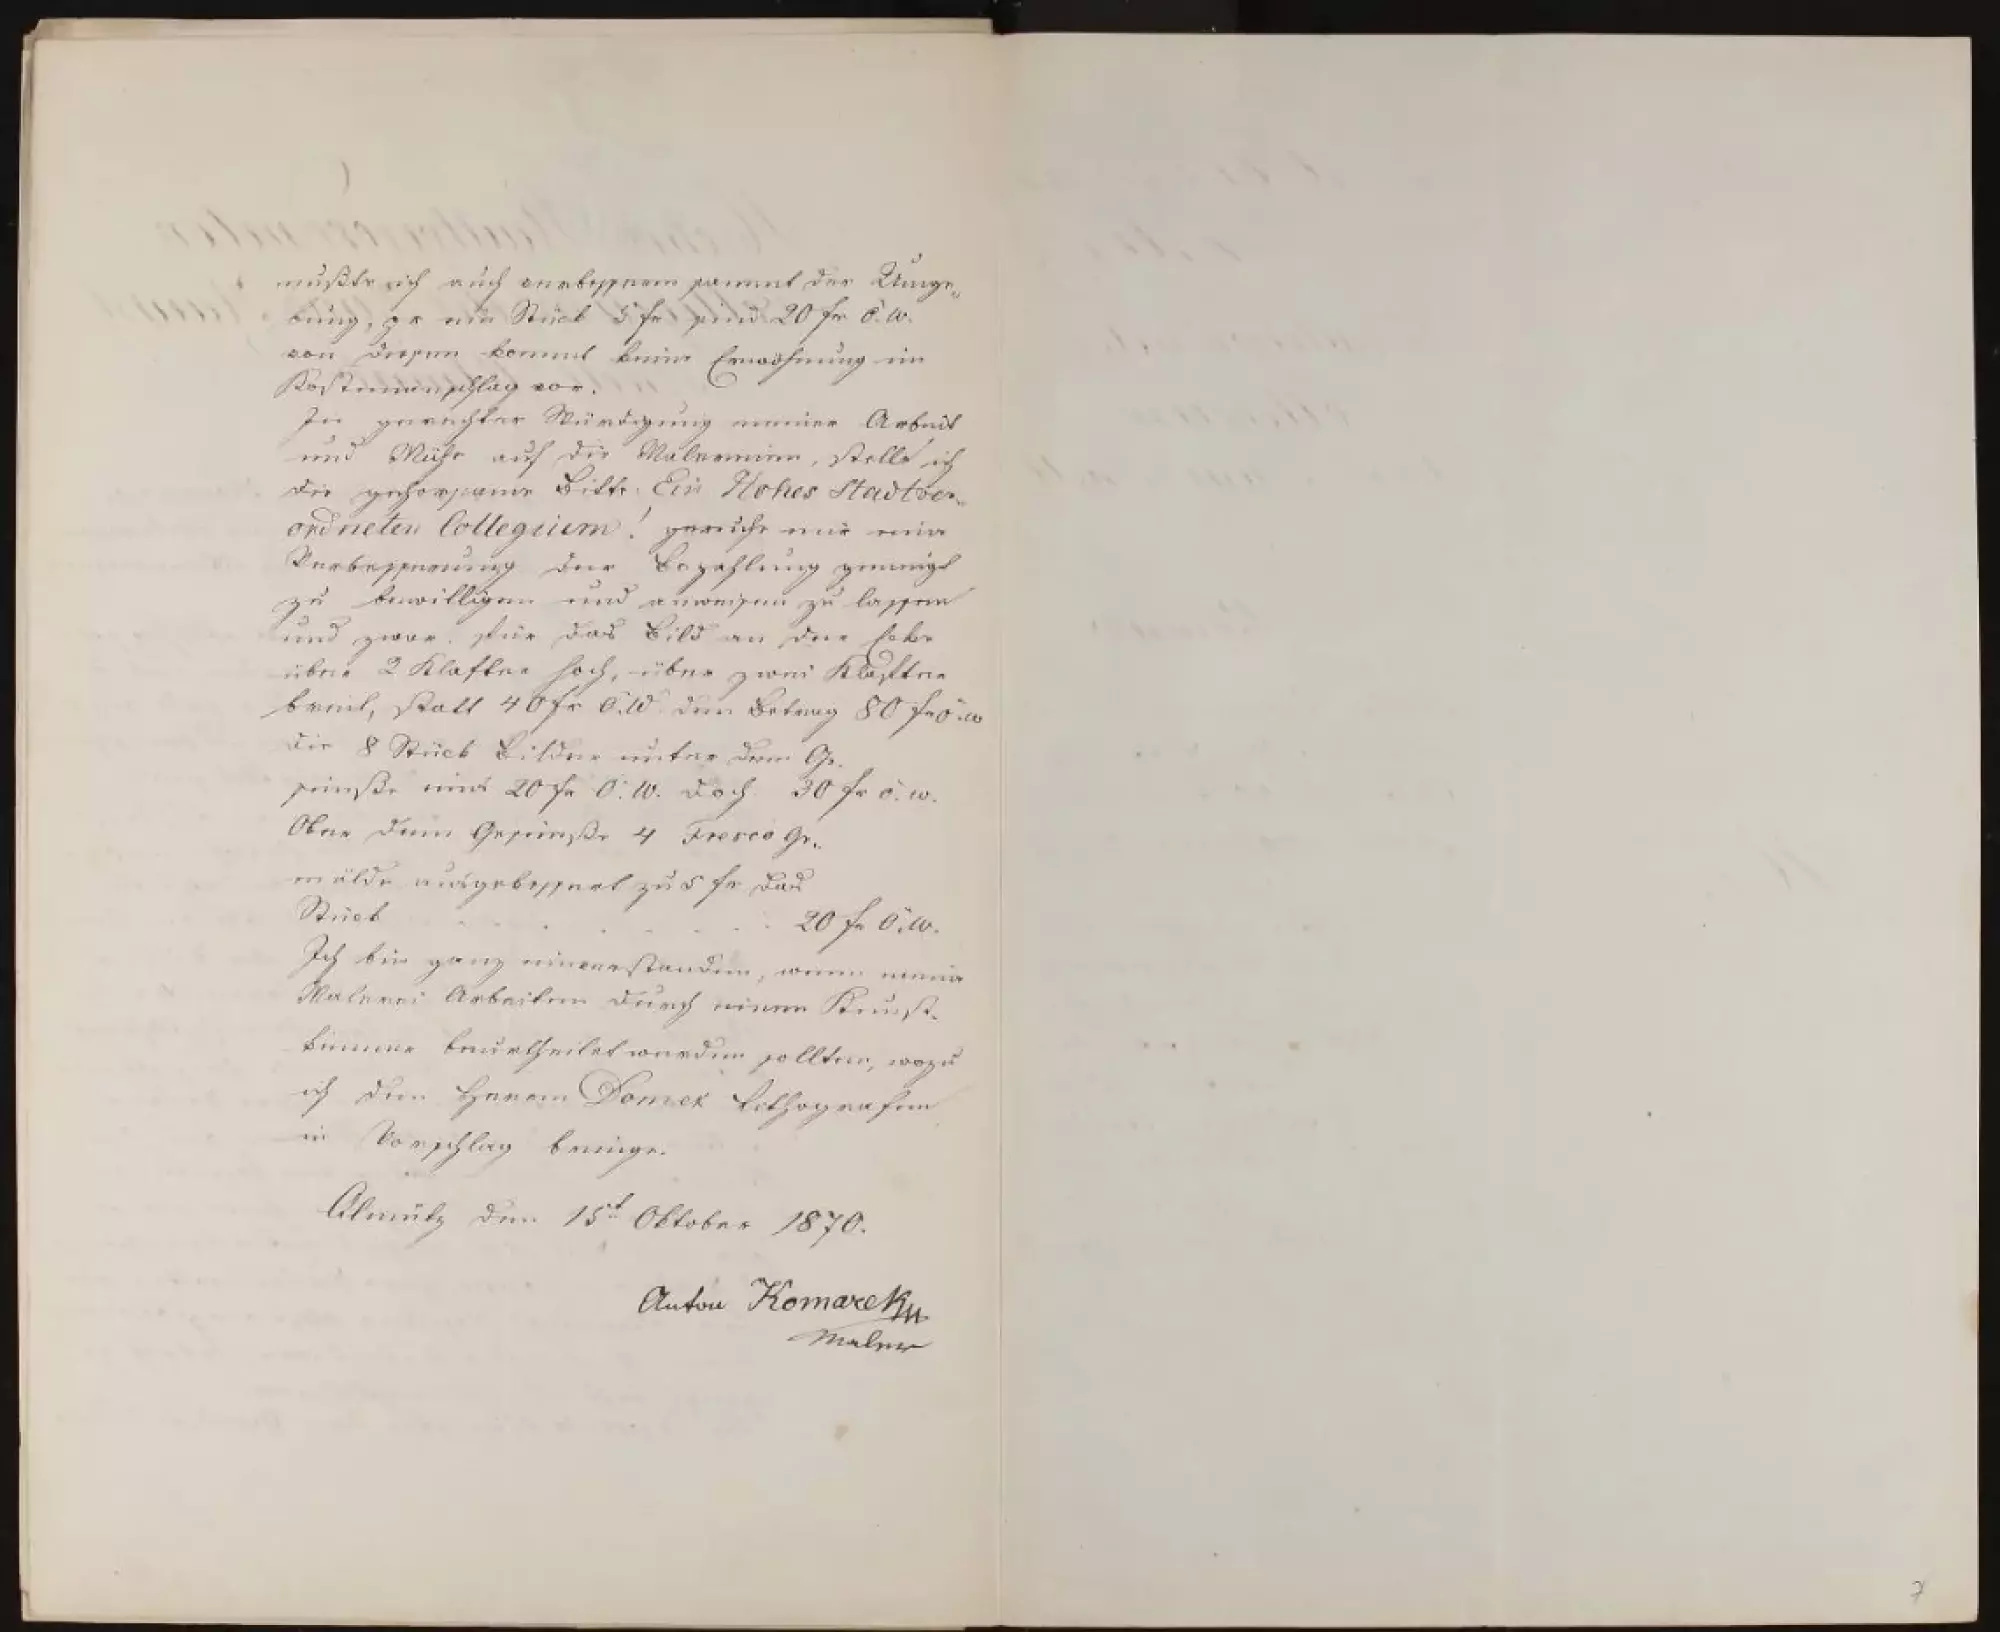 mußte ich auch verbessern sammt der Umge„
bung, pr ein Stück 5 fr sind 20 fr ö. W.
von diesen kommt keine Erwähnung im
Kostenanschlag vor.
In gerechter Würdigung meiner Arbeit
und Mühe auf die Malereien, stelle ich
die gehorsame Bitte: Ein Hohes Stadtver„
ordneten Collegium! geruhe mir eine
Verbesserung der Bezahlung geneigt
zu bewilligen und anweisen zu lassen
und zwar. für das Bild an der Ecke
über 2 Klafter hoch, über zwei Klafter
breit, statt 40 fr ö. W. den Betrag 80 fr ö. w
die 8 Stück Bilder unter dem Ge„
simße mit 20 fr ö. W. doch 30 fr ö. w.
Ober dem Gesimße 4 Fresco Ge„
mälde ausgebessert zu 5 fr das
Stück . . . . . . . . 20 fr ö. W.
Ich bin ganz einverstanden, wenn meine
Malerei Arbeiten durch einen Kunst„
kenner beurtheilet werden sollten, wozu
ich den Herrn Domek Lithografen
in Vorschlag bringe.
Olmütz den 15t Oktober 1870.
Anton Komarek
Maler
7